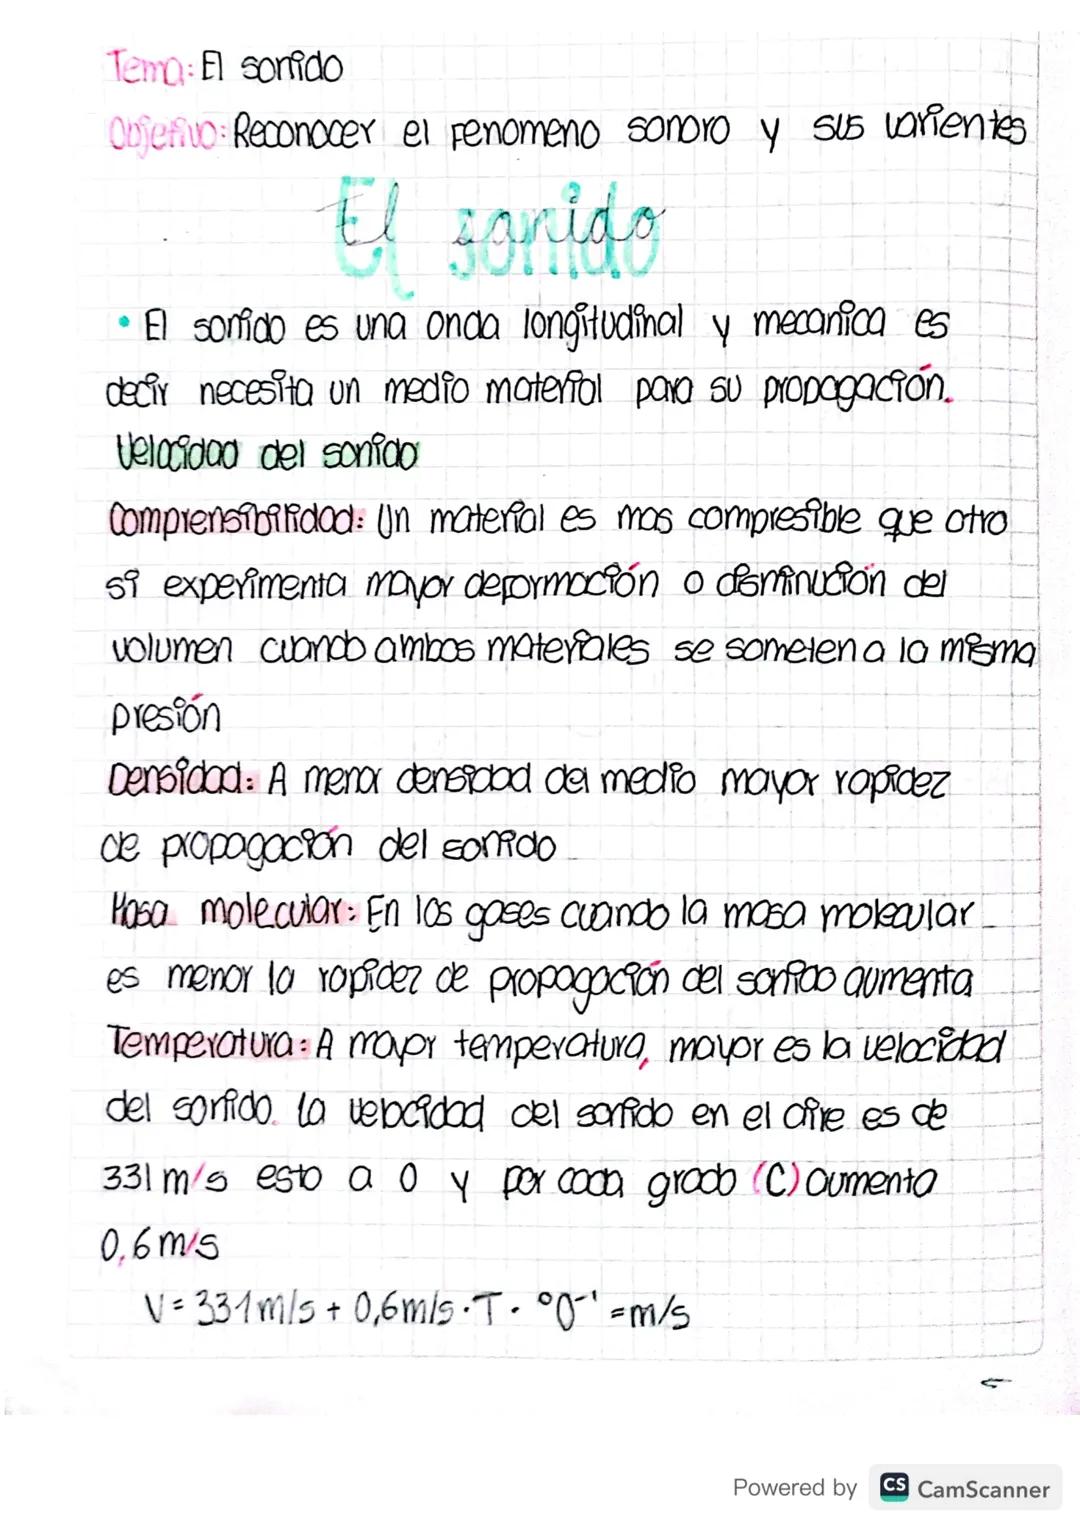 Tema: El sonido
Objetivo: Reconocer el fenomeno sonoro y sus varientes
El sonido
• El sonido es una onda longitudinal y mecanica es
decir necesita un medio material para su propagación.
Velocidad del sonido
Comprensibilidad: Un material es mas compresible que otro
si experimenta mayor deformación o disminución del
volumen cuando ambos materiales se someten a la misma
presión
Densidad: A menor densidad del medio mayor rapidez
de propagación del sonido
Masa molecular: En los gases cuando la masa molecular
es menor la rapidez de propagación del sonido aumenta
Temperatura: A mayor temperatura, mayor es la velocidad
del sonido. la velocidad del sonido en el aire es de
331 m/s esto a 0 y por cada grado (C) aumenta
0,6 m/s
V = 331 m/s + 0,6 m/s · T · °0⁻¹ = m/s
Powered by CS CamScanner